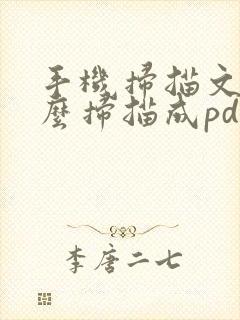 手機掃描文
麼掃描成pd
李唐二七